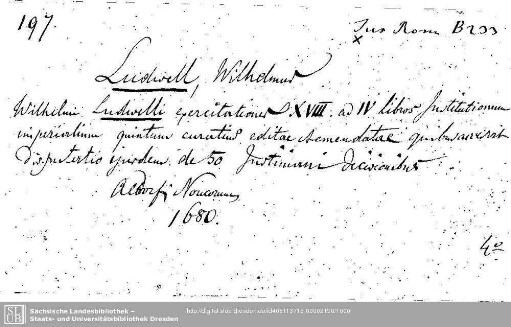 197.
Jus Rom B233
x
Ludwell, Wilhelmus
Wilhelmi Ludwelli exercitationes XVIII. ad IV libros Institutionum
imperialium quintum curatius editae et emendatae quibus accessit
disputatio ejusdem de 50 Justiniani decisionibus
Altdorfi Noricorum
1680.
4o
Sächsische Landesbibliothek –
Staats- und Universitätsbibliothek Dresden